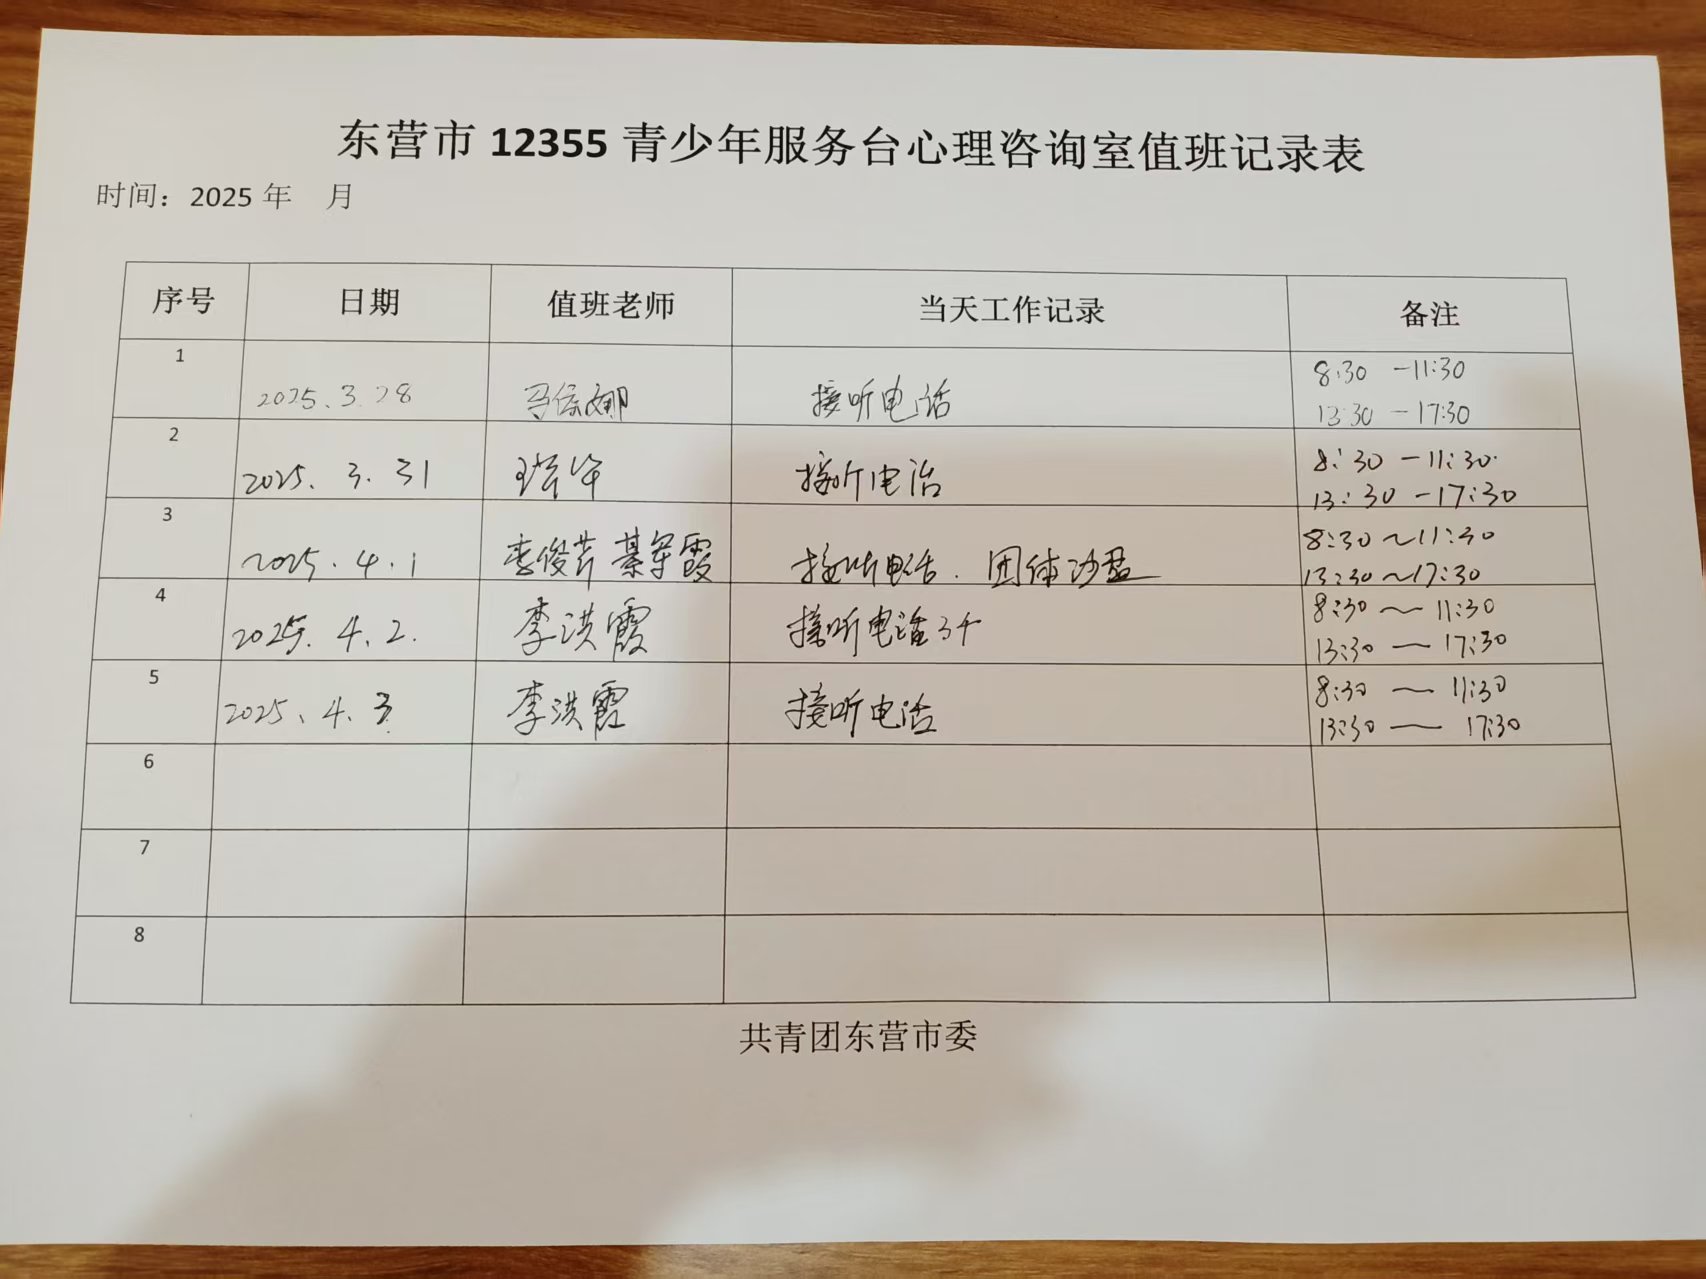 东营市 12355 青少年服务台心理咨询室值班记录表
时间：2025 年 月
序号 日期 值班老师 当天工作记录 备注
1 2025.3.28 接听电话 8:30 -11:30
13:30 -17:30
2 2025.3.31 接听电话 8:30 -11:30
13:30 -17:30
3 2025.4.1 李俊芹 綦军霞 接听电话.团体沙盘 8:30~11:30
13:30~17:30
4 2025.4.2. 李洪霞 接听电话3个 8:30~11:30
13:30—17:30
5 2025、4.3 李洪霞 接听电话 8:30—11:30
13:30—17:30
6
7
8
共青团东营市委